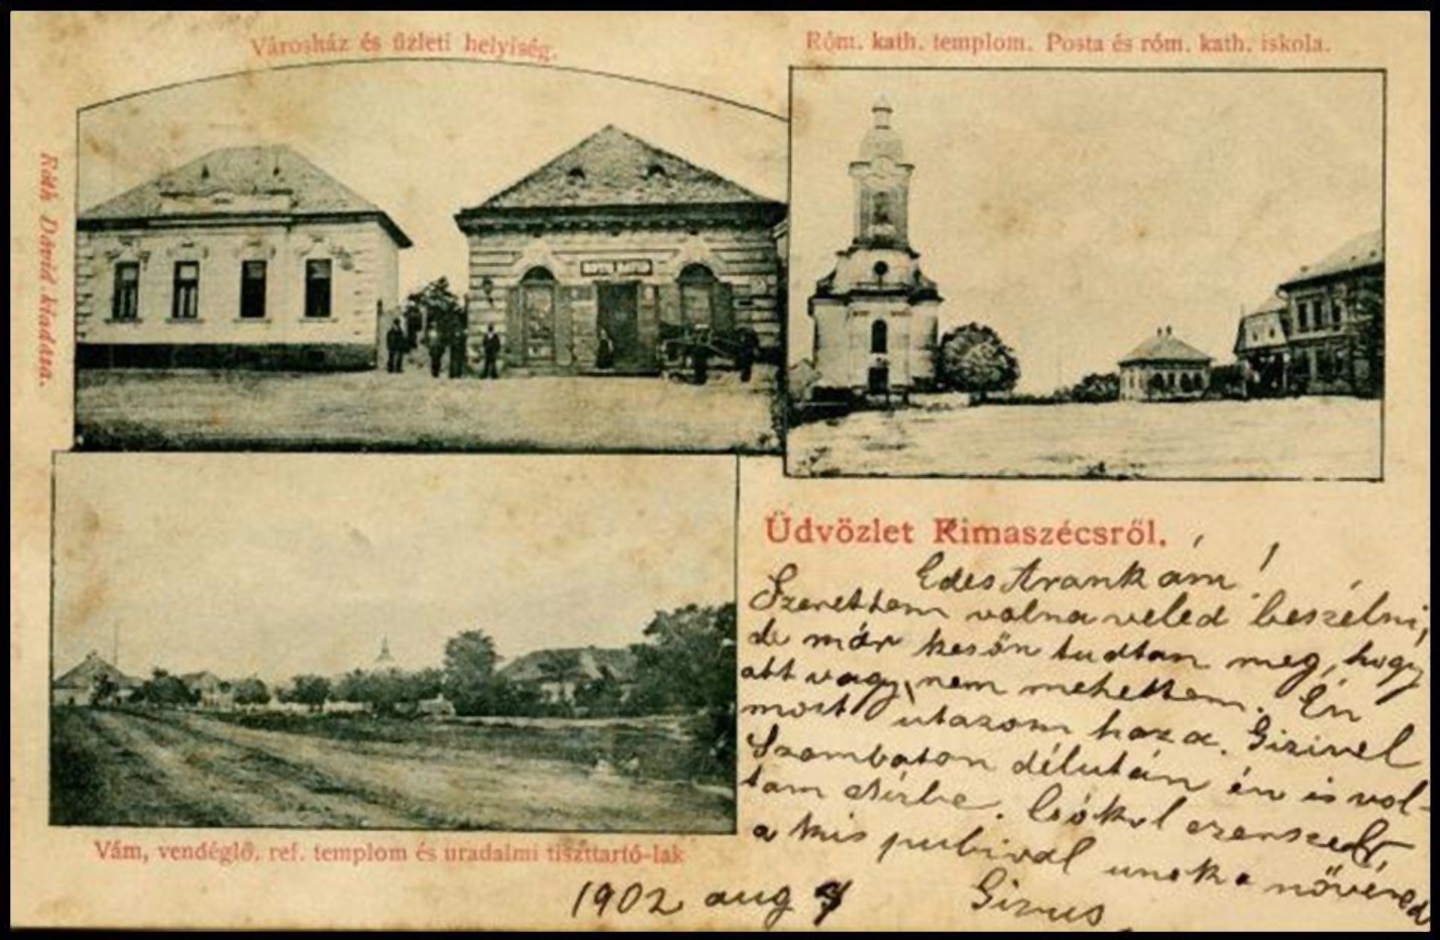 Városház és üzleti helyiség.
Róm. kath. templom. Posta és róm. kath. iskola.
Ráth Dávid kiadása.
Vám, vendéglő, ref. templom és uradalmi tiszttartó-lak
Üdvözlet Rimaszécsről.
Édes Arankám!
Szerettem volna veled beszélni,
de már későn tudtam meg, hogy
ott vagy, nem mehettem. Én
most utazom haza. Gizivel
Szombaton délután én is vol-
tam. Csókol ezerszer
a kis pubival unoka nővéred
Gizus
1902 aug